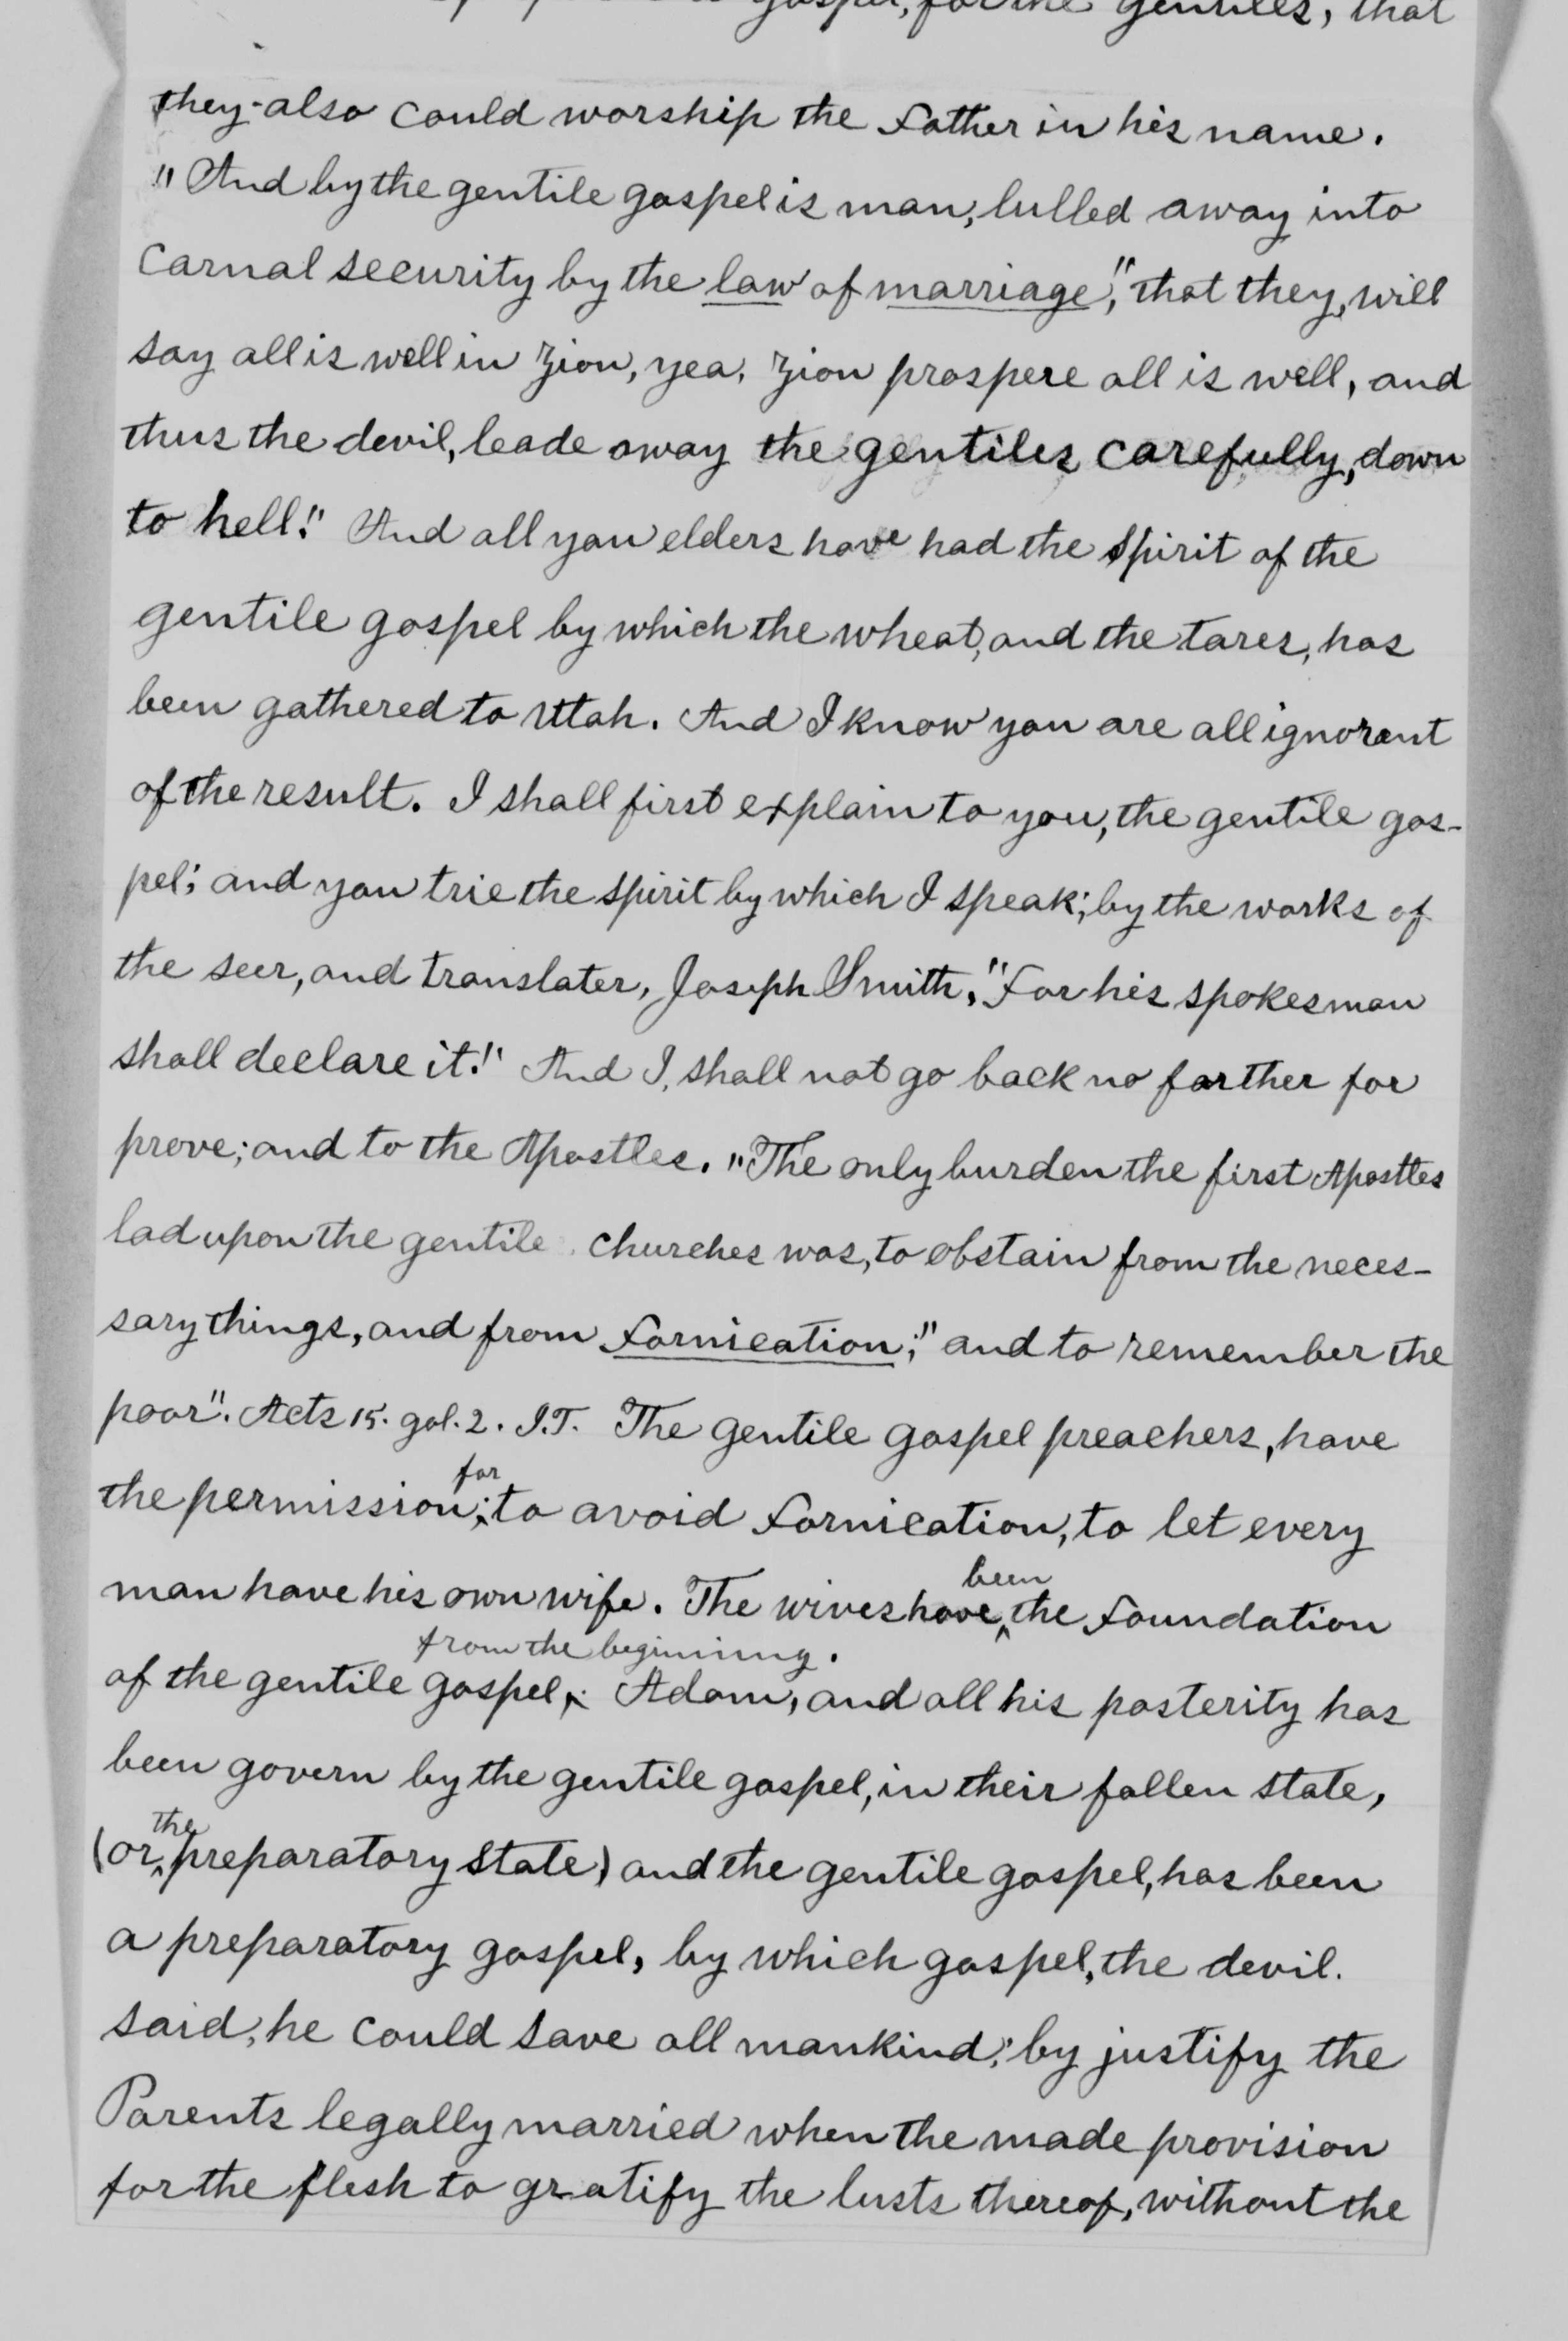 gospel, for the gentiles, that
they also could worship the Father in his name.
"And by the gentile gospel is man, lulled away into
Carnal security by the law of marriage", that they, will
say all is well in Zion, yea, Zion prospere all is well, and
thus the devil, leade away the gentiles carefully, down
to hell!" And all you elders have had the spirit of the
gentile gospel by which the wheat, and the tares, has
been gathered to Utah. And I know you are all ignorent
of the result. I shall first explain to you, the gentile gos-
pel; and you trie the spirit by which I speak; by the works of
the seer, and translater, Joseph Smith, "For his spokesman
shall declare it!" And I, shall not go back no farther for
prove; and to the Apostles. "The only burden the first Apostles
lad upon the gentile churches was, to abstain from the neces-
sary things, and from fornication;" and to remember the
poor". Acts 15. gal. 2. I.T. The gentile gospel preachers, have
for
the permission; to avoid fornication, to let every
man have his own wife. The wives have been the foundation
from the beginning.
of the gentile gospel, Adam, and all his posterity has
been govern by the gentile gospel, in their fallen state,
(or the preparatory state) and the gentile gospel, has been
a preparatory gospel, by which gospel, the devil.
said, he could save all mankind; by justify the
Parents legally married when the made provision
for the flesh to gratify the lusts thereof, without the